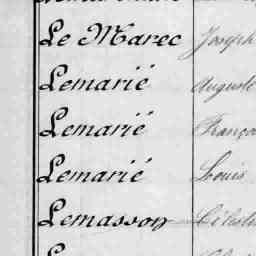 Le Marec Joseph
Lemarié Auguste
Lemarié Franço
Lemarié Louis
Lemasson